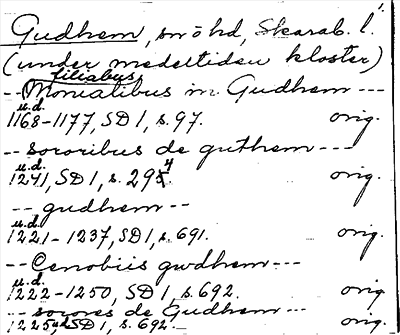 Gudhem, sn o hd, Skarab. l.
(under medeltiden kloster)
filiabus
-- Monialibus in Gudhem ---
u.d.
1168-1177, SD 1, s. 97. orig.
-- sororibus de guthem ---
u.d. 4
1241, SD 1, s. 295. orig.
-- gudhem --
u.d.
1221-1237, SD 1, s. 691. orig.
-- Cenobiis gwdhem ---
u.d.
1222-1250, SD 1, s. 692. orig
-- sorores de Gudhem ---
1225 SD 1, s. 692. orig.